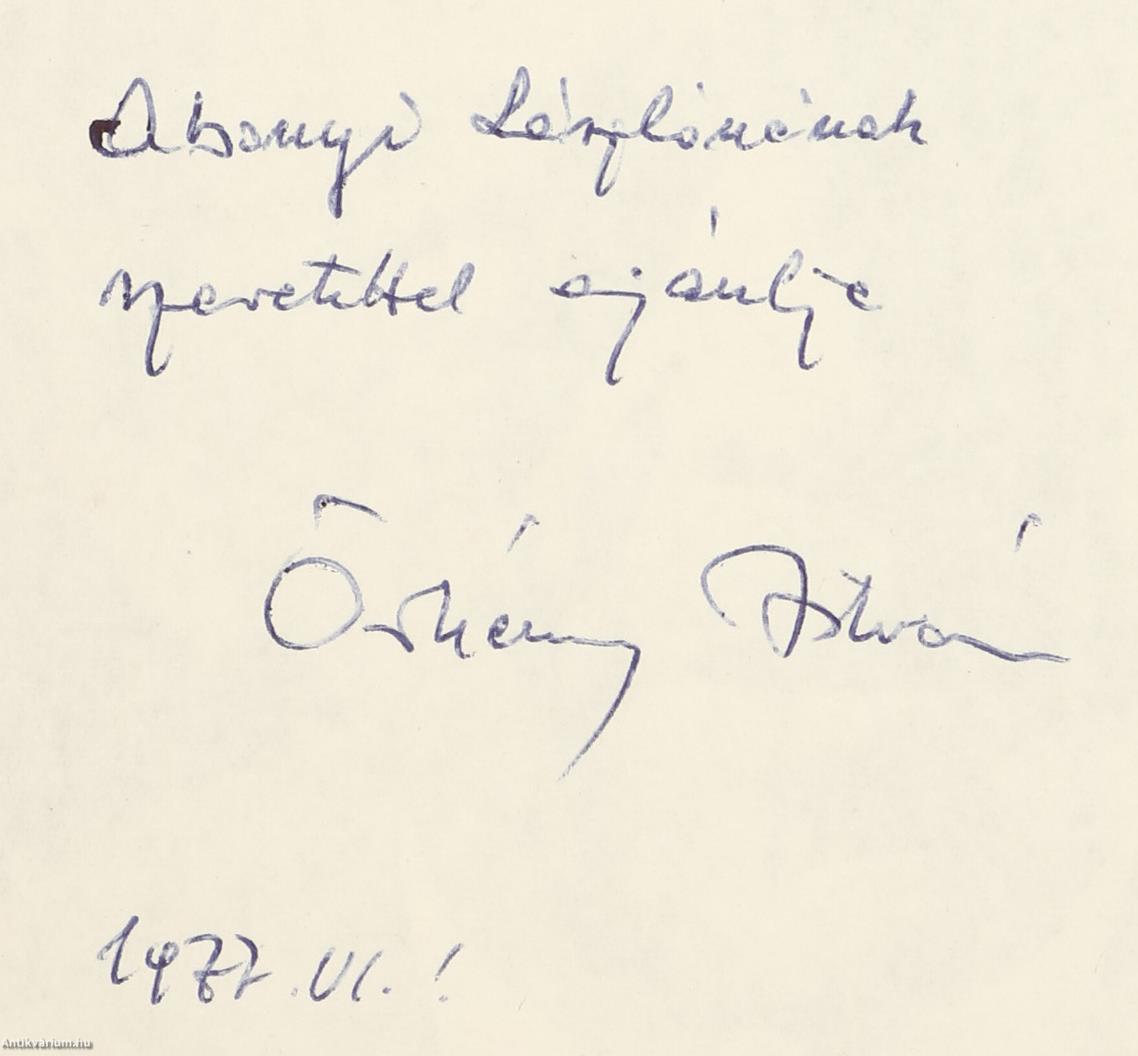 Abonyi Lászlónénak
szeretettel ajánlja
Örkény István
1977. VI. 1
Antikvárium.hu